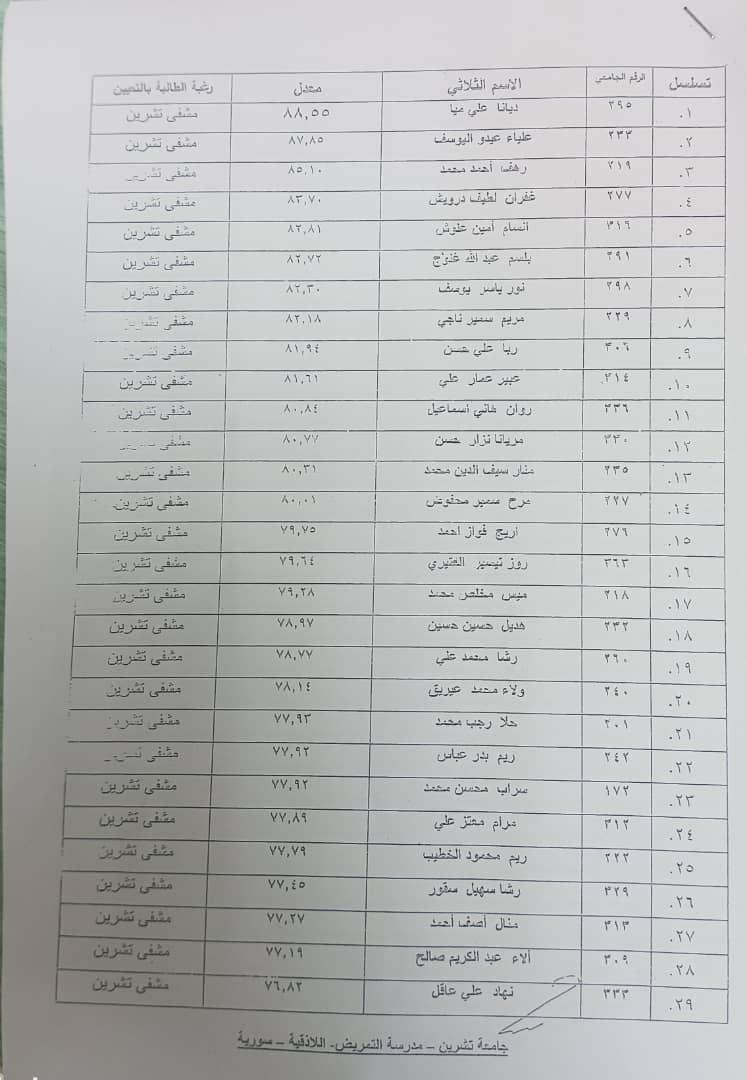 تسلسل الرقم الجامعي الاسم الثلاثي معدل رغبة الطالبة بالتعيين
١. ٢٩٥ ديانا علي ميا ٨٨,٥٥ مشفى تشرين
٢. ٢٣٣ علياء عيدو اليوسف ٨٧,٨٥ مشفى تشرين
٣. ٢١٩ رهف أحمد محمد ٨٥,١٠ مشفى تشرين
٤. ٢٧٧ غفران لطيف درويش ٨٣,٧٠ مشفى تشرين
٥. ٣١٦ انسام أمين علوش ٨٢,٨١ مشفى تشرين
٦. ٢٩١ بلسم عبد الله غنوج ٨٢,٧٢ مشفى تشرين
٧. ٢٩٨ نور ياسر يوسف ٨٢,٣٠ مشفى تشرين
٨. ٢٢٩ مريم سمير ناجي ٨٢,١٨ مشفى تشرين
٩. ٣٠٦ ربا علي حسن ٨١,٩٤ مشفى تشرين
١٠. ٣١٤ عبير عمار علي ٨١,٦١ مشفى تشرين
١١. ٣٣٦ روان هاني اسماعيل ٨٠,٨٤ مشفى تشرين
١٢. ٣٣٠ مريانا نزار حسن ٨٠,٧٧ مشفى تشرين
١٣. ٢٣٥ منار سيف الدين محمد ٨٠,٣١ مشفى تشرين
١٤. ٢٢٧ مرح سمير محفوض ٨٠,٠١ مشفى تشرين
١٥. ٢٧٦ اريج فواز احمد ٧٩,٧٥ مشفى تشرين
١٦. ٣٦٣ روز تيسير العتيري ٧٩,٦٤ مشفى تشرين
١٧. ٢١٨ ميس مخلص محمد ٧٩,٢٨ مشفى تشرين
١٨. ٢٣٢ هديل حسين حسين ٧٨,٩٧ مشفى تشرين
١٩. ٢٦٠ رشا محمد علي ٧٨,٧٧ مشفى تشرين
٢٠. ٢٤٠ ولاء محمد عيريق ٧٨,١٤ مشفى تشرين
٢١. ٢٠١ حلا رجب محمد ٧٧,٩٣ مشفى تشرين
٢٢. ٢٤٢ ريم بدر عباس ٧٧,٩٢ مشفى تشرين
٢٣. ١٧٢ سراب محسن محمد ٧٧,٩٢ مشفى تشرين
٢٤. ٣١٢ مرام معتز علي ٧٧,٨٩ مشفى تشرين
٢٥. ٢٢٢ ريم محمود الخطيب ٧٧,٧٩ مشفى تشرين
٢٦. ٣٢٩ رشا سهيل سقور ٧٧,٤٥ مشفى تشرين
٢٧. ٣١٣ منال أصف أحمد ٧٧,٢٧ مشفى تشرين
٢٨. ٣٠٩ ألاء عبد الكريم صالح ٧٧,١٩ مشفى تشرين
٢٩. ٣٣٣ نهاد علي عاقل ٧٦,٨٢ مشفى تشرين
جامعة تشرين – مدرسة التمريض- اللاذقية – سورية